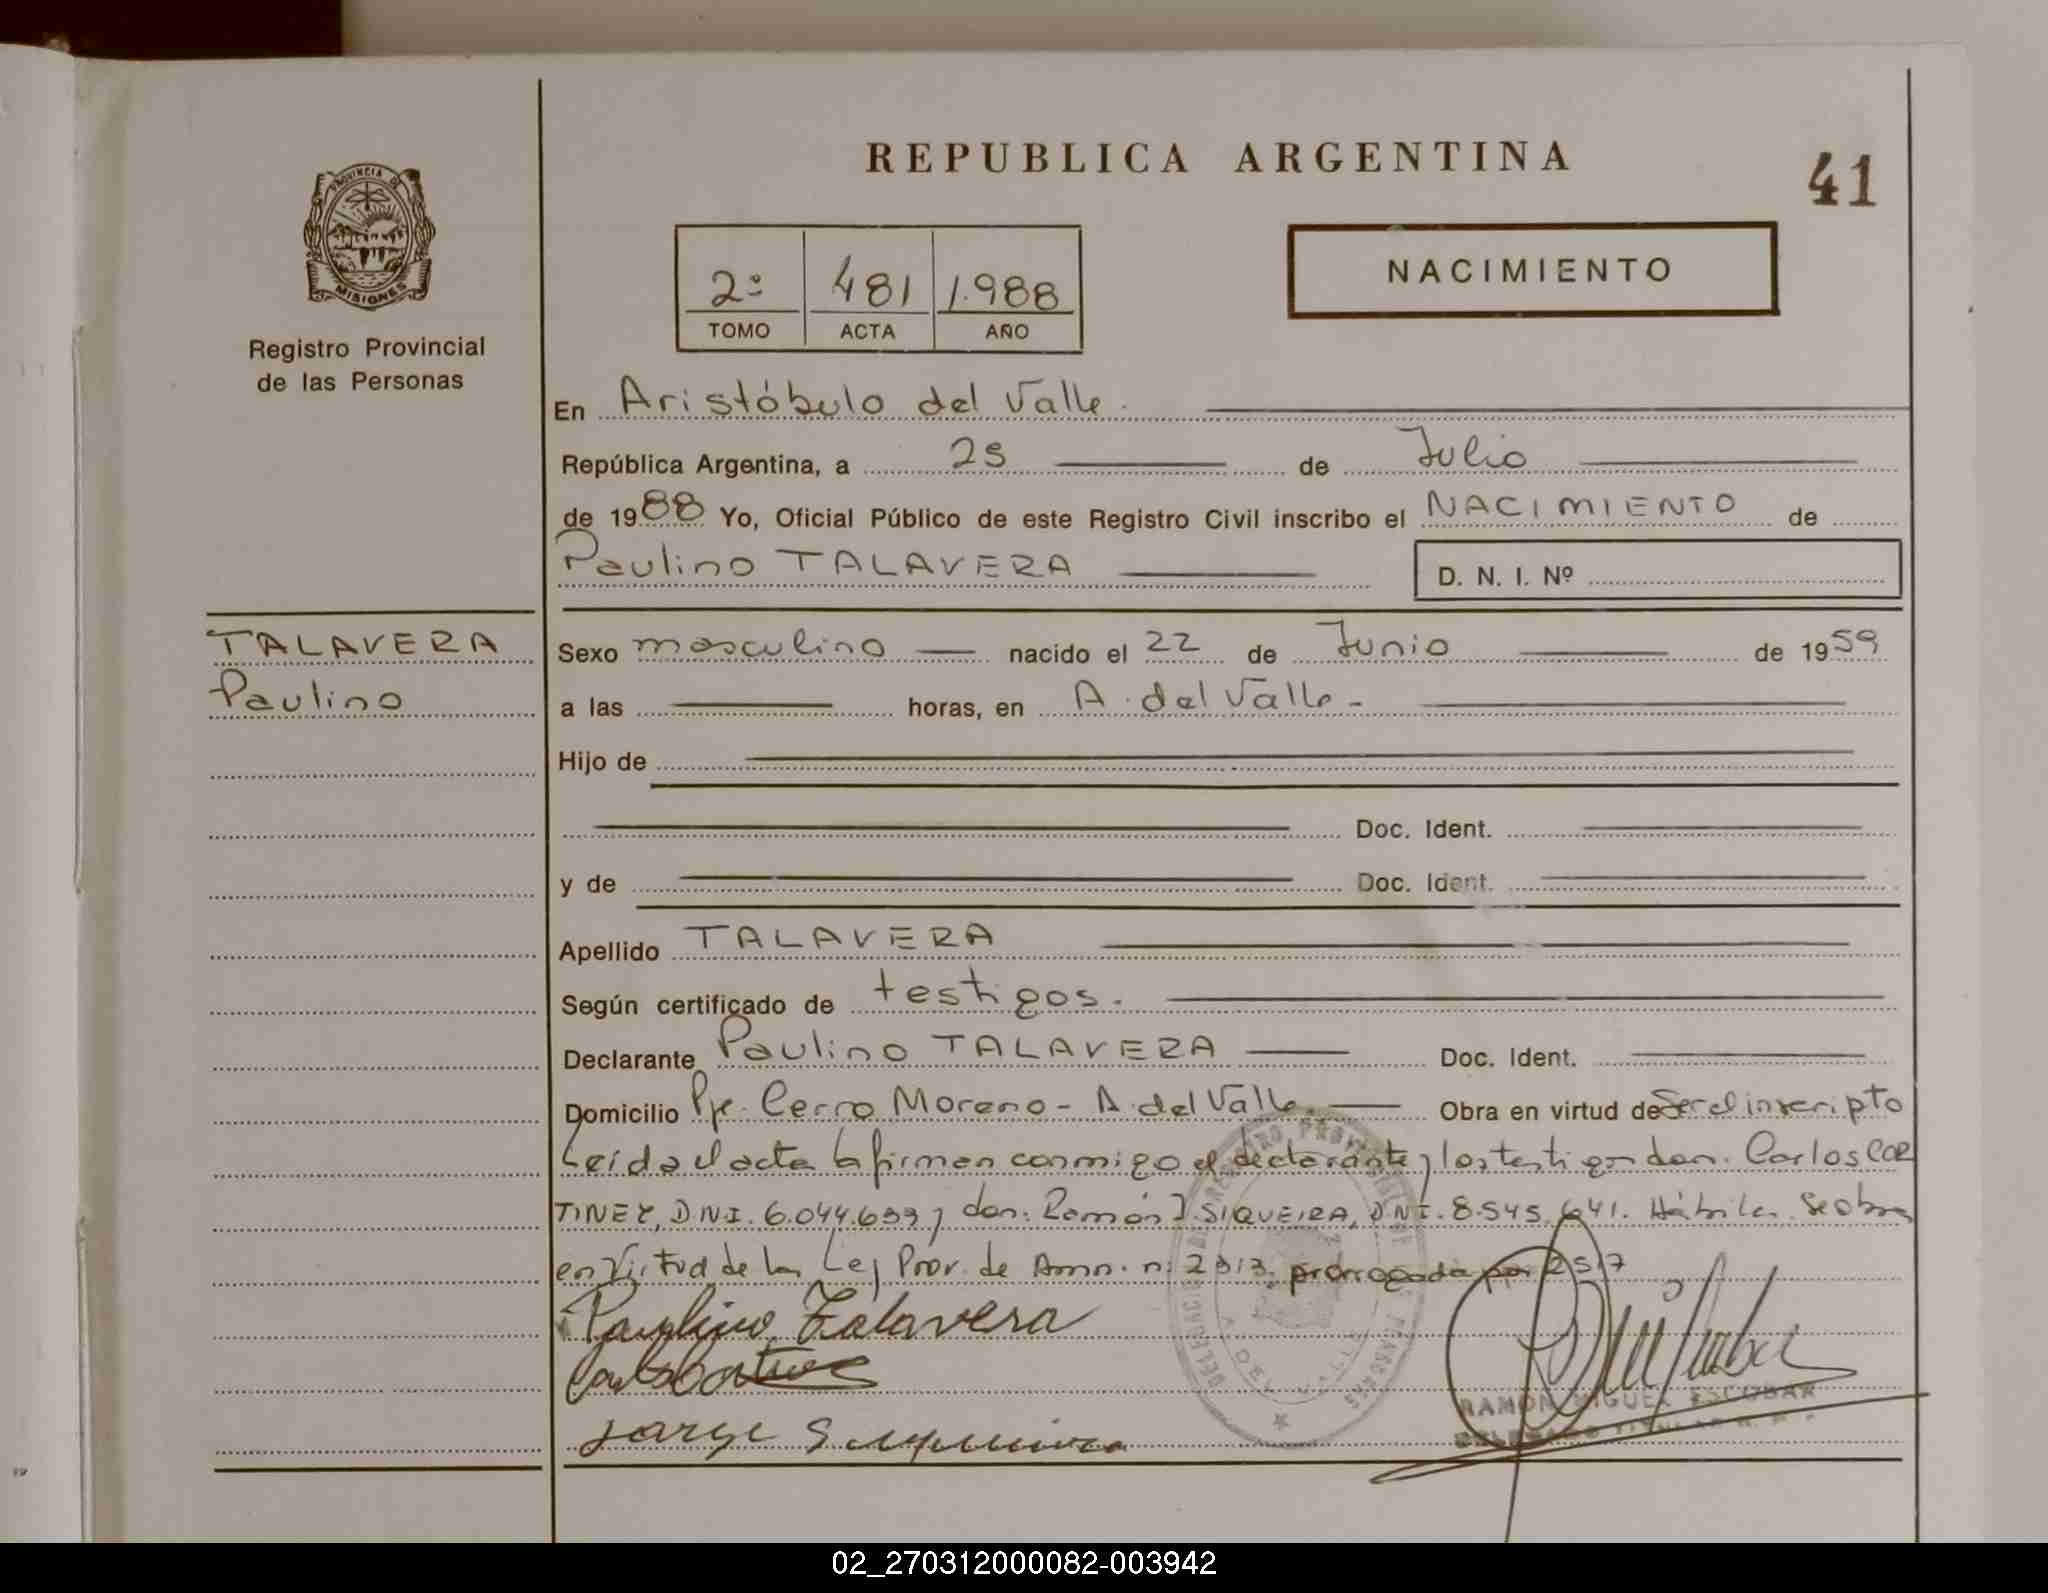 REPUBLICA ARGENTINA
41
PROVINCIA DE
MISIONES
Registro Provincial
de las Personas
2º 481 1.988
TOMO ACTA AÑO
NACIMIENTO
En Aristóbulo del Valle.
República Argentina, a 25 de Julio
de 1988 Yo, Oficial Público de este Registro Civil inscribo el NACIMIENTO de
Paulino TALAVERA D. N. I. Nº
TALAVERA
Paulino
Sexo masculino nacido el 22 de Junio de 1959
a las horas, en A. del Valle -
Hijo de
Doc. Ident.
y de Doc. Ident.
Apellido TALAVERA
Según certificado de testigos.
Declarante Paulino TALAVERA Doc. Ident.
Domicilio Pje. Cerro Moreno - A. del Valle. Obra en virtud de Ser el inscripto
Leída el acta la firman conmigo el declarante y los testigos don. Carlos COR
TINEZ, D.N.I. 6.044.699 y don. Ramón J. SIQUEIRA, D.N.I. 8.545.641. Hábiles. Se obra
en Virtud de la Ley Prov. de Amn. n: 2313. prorrogada por 2517
Paulino Talavera
Jorge
RAMON MIGUEL ESCOBAR
DELEGADO TITULAR
A. DEL VALLE
02_270312000082-003942